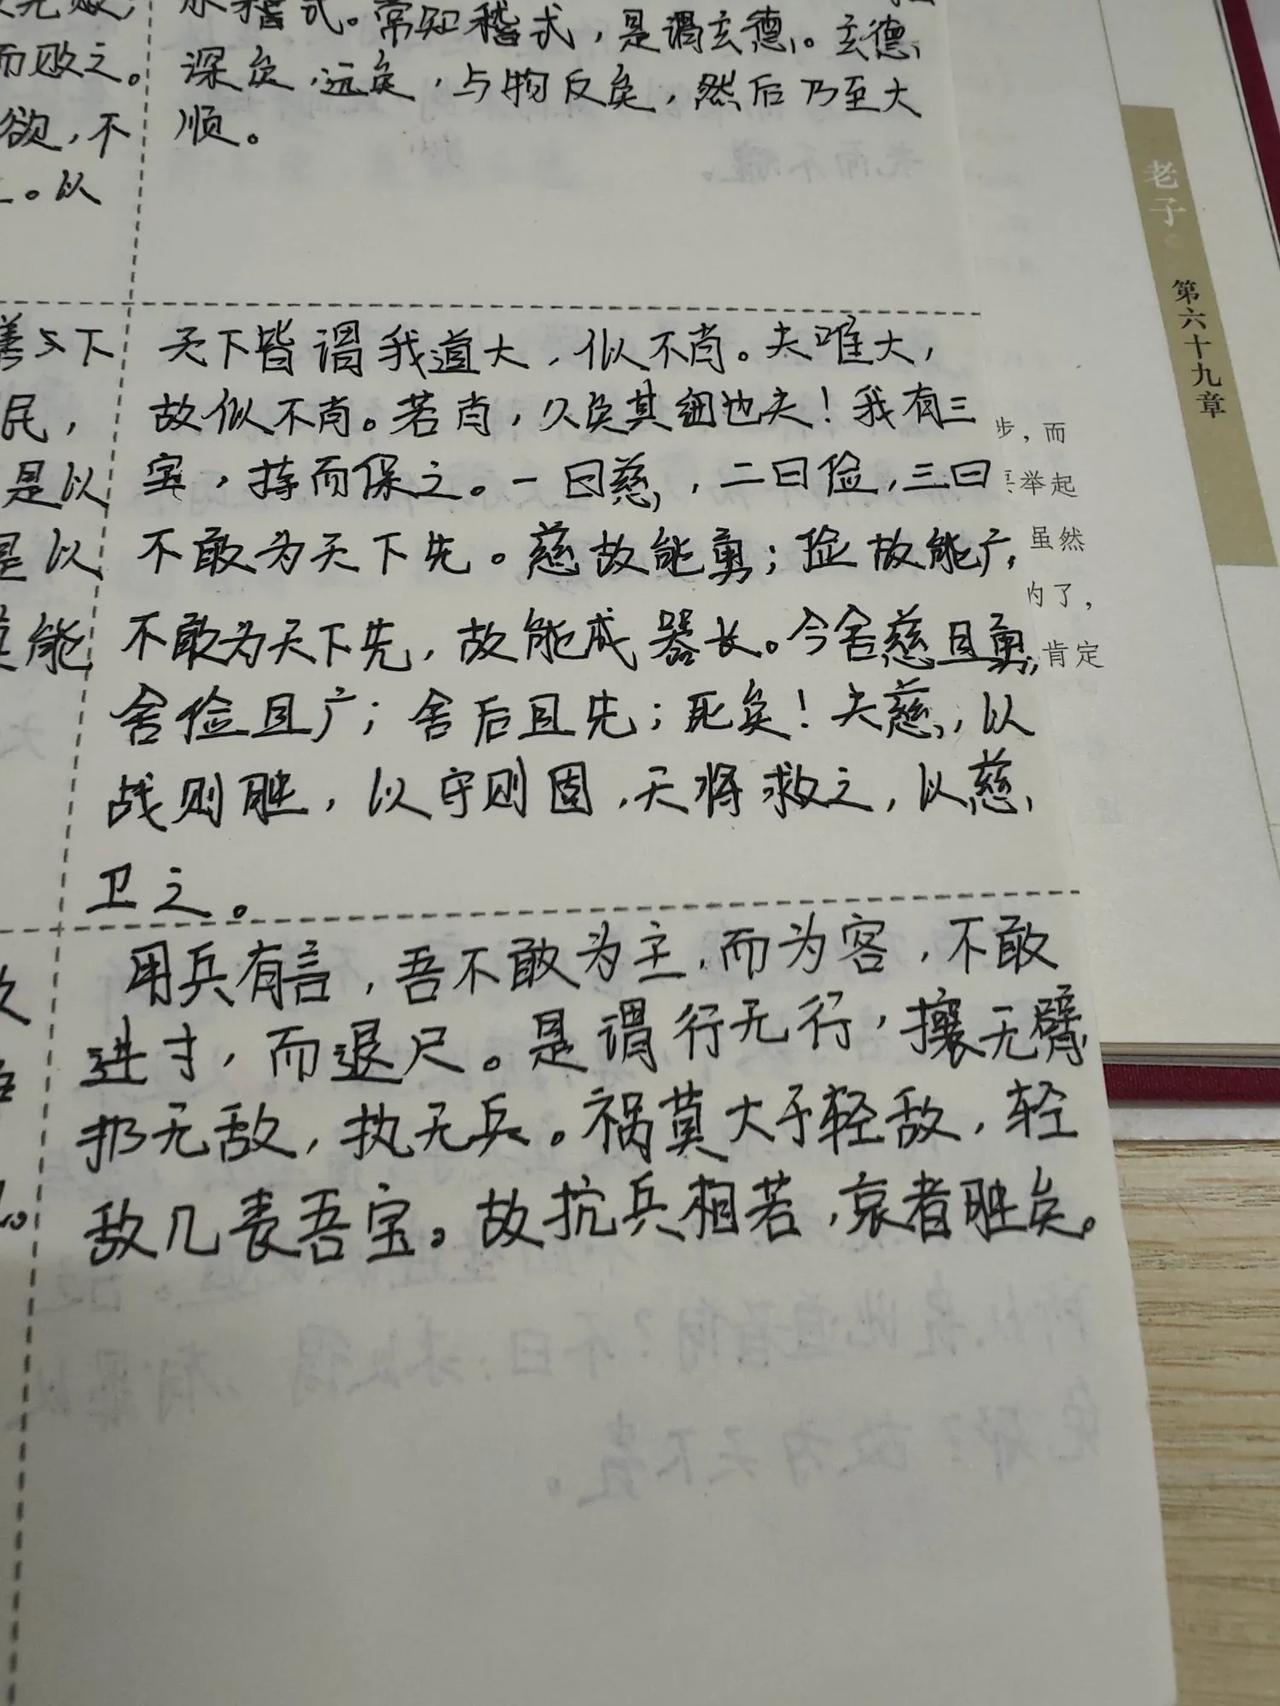 而败之。
欲，不
。以
亦稽式。常知稽式，是谓玄德。玄德
深矣，远矣，与物反矣，然后乃至大
顺。
善与下
民，
是以
是以
莫能
天下皆谓我道大，似不肖。夫唯大，
故似不肖。若肖，久矣其细也夫！我有三
宝，持而保之。一曰慈，二曰俭，三曰
不敢为天下先。慈故能勇；俭故能广，
不敢为天下先，故能成器长。今舍慈且勇，
舍俭且广；舍后且先；死矣！夫慈，以
战则胜，以守则固，天将救之，以慈
卫之。
用兵有言，吾不敢为主，而为客，不敢
进寸，而退尺。是谓行无行，攘无臂
扔无敌，执无兵。祸莫大于轻敌，轻
敌几丧吾宝。故抗兵相若，哀者胜矣。
老子
第六十九章
步，而
举起
虽然
内了，
肯定